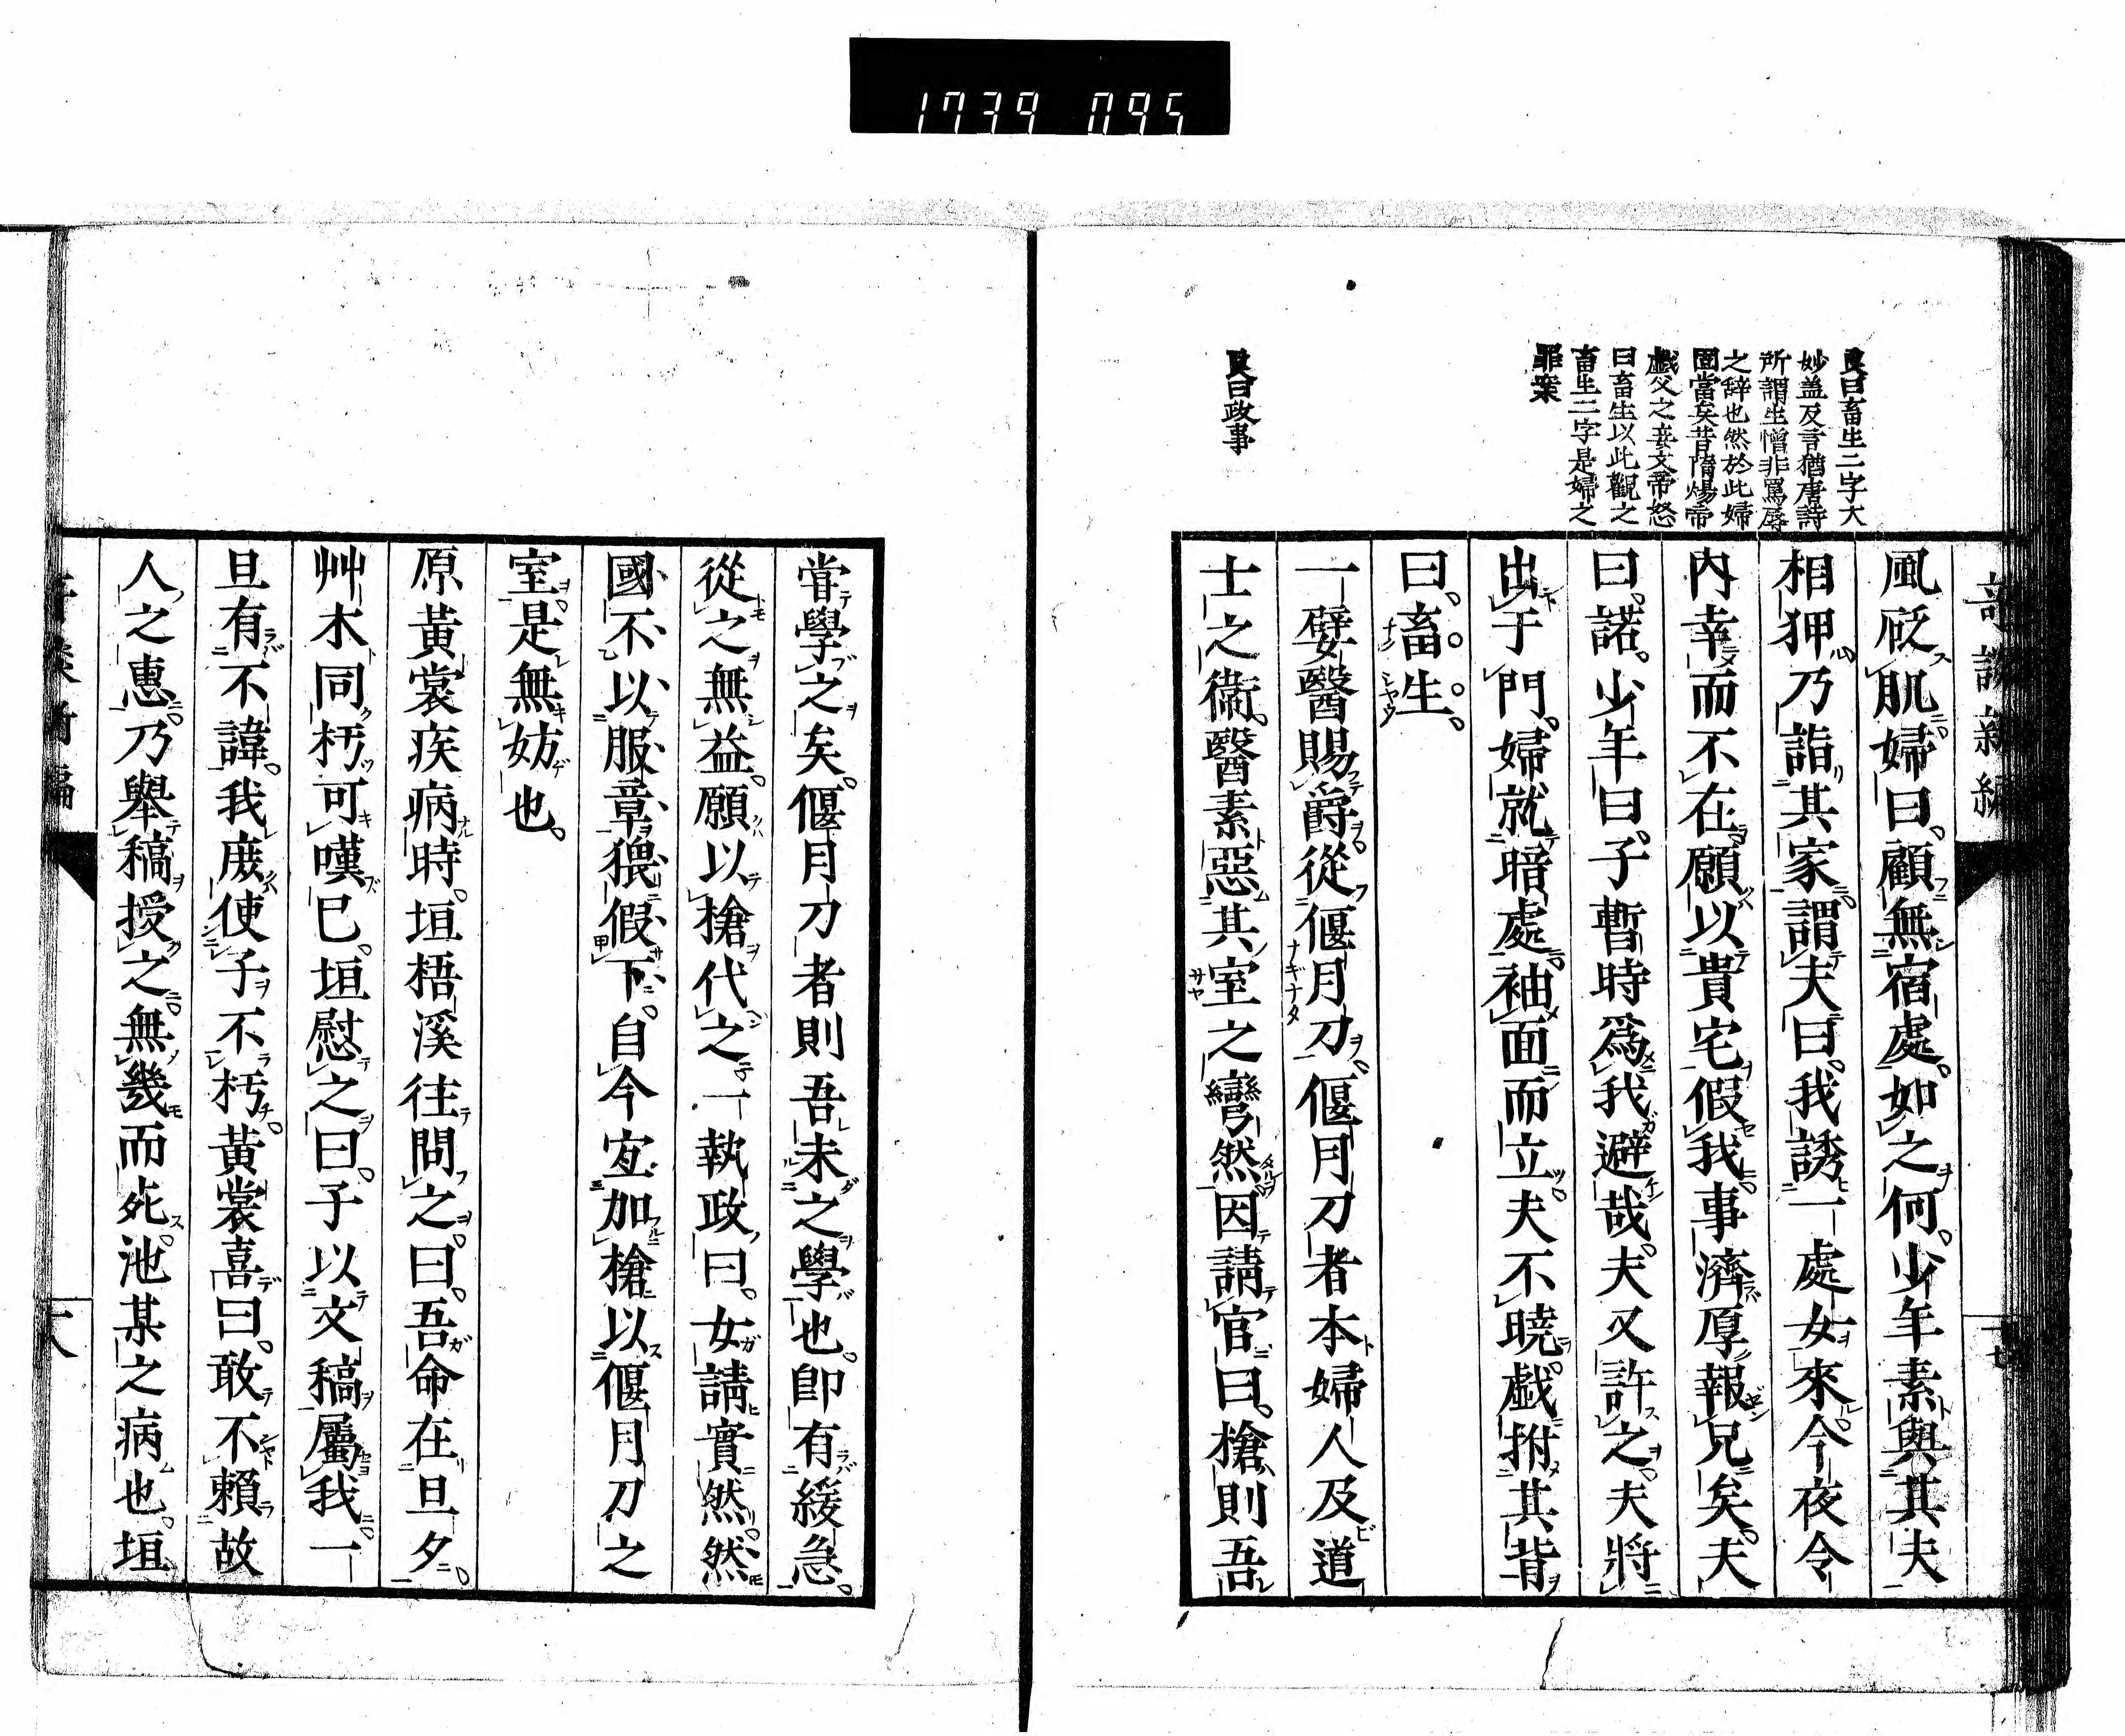 1739 095
良曰畜生二字大
妙蓋反言猶唐詩
所謂生憎非罵辱
之辞也然於此婦
固當矣昔隋煬帝
戯父之妾文帝怒
曰畜生以此觀之
畜生二字是婦之
罪案
良曰政事
風砭肌婦曰。顧無宿處。如之何。少年素與其夫
相狎乃詣其家謂夫曰。我誘一處女來今夜令
内幸而不在願以貴宅假我事濟厚報兄矣。夫
曰。諾。少年曰。子暫時爲我避哉。夫又許之。夫將
出于門。婦就暗處袖面而立。夫不曉戯拊其背
曰。畜生。
一嬖醫賜爵從偃月刀。偃月刀者本婦人及道
士之衞。醫素惡其室之彎然因請官曰。槍則吾
甞學之矣。偃月刀者則吾未之學也。卽有緩急。
從之無益。願以槍代之一執政曰。女請實然然
國不以服章猥假下。自今宐加槍以偃月刀之
室。是無妨也。
原黃裳疾病時。垣梧溪往問之。曰。吾命在旦夕。
艸木同朽可嘆已。垣慰之曰。子以文稿屬我。一
旦有不諱。我庻使子不朽。黃裳喜曰。敢不賴故
人之惠。乃舉稿授之。無幾而死。池某之病也。垣